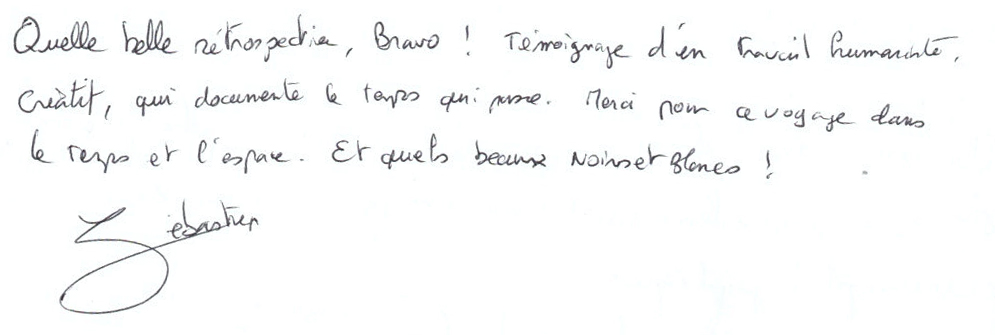 Quelle belle rétrospective, Bravo ! Témoignage d'un travail humaniste,
Créatif, qui documente le temps qui passe. Merci pour ce voyage dans
le temps et l'espace. Et quels beaux Noirs et Blancs !
Sébastien